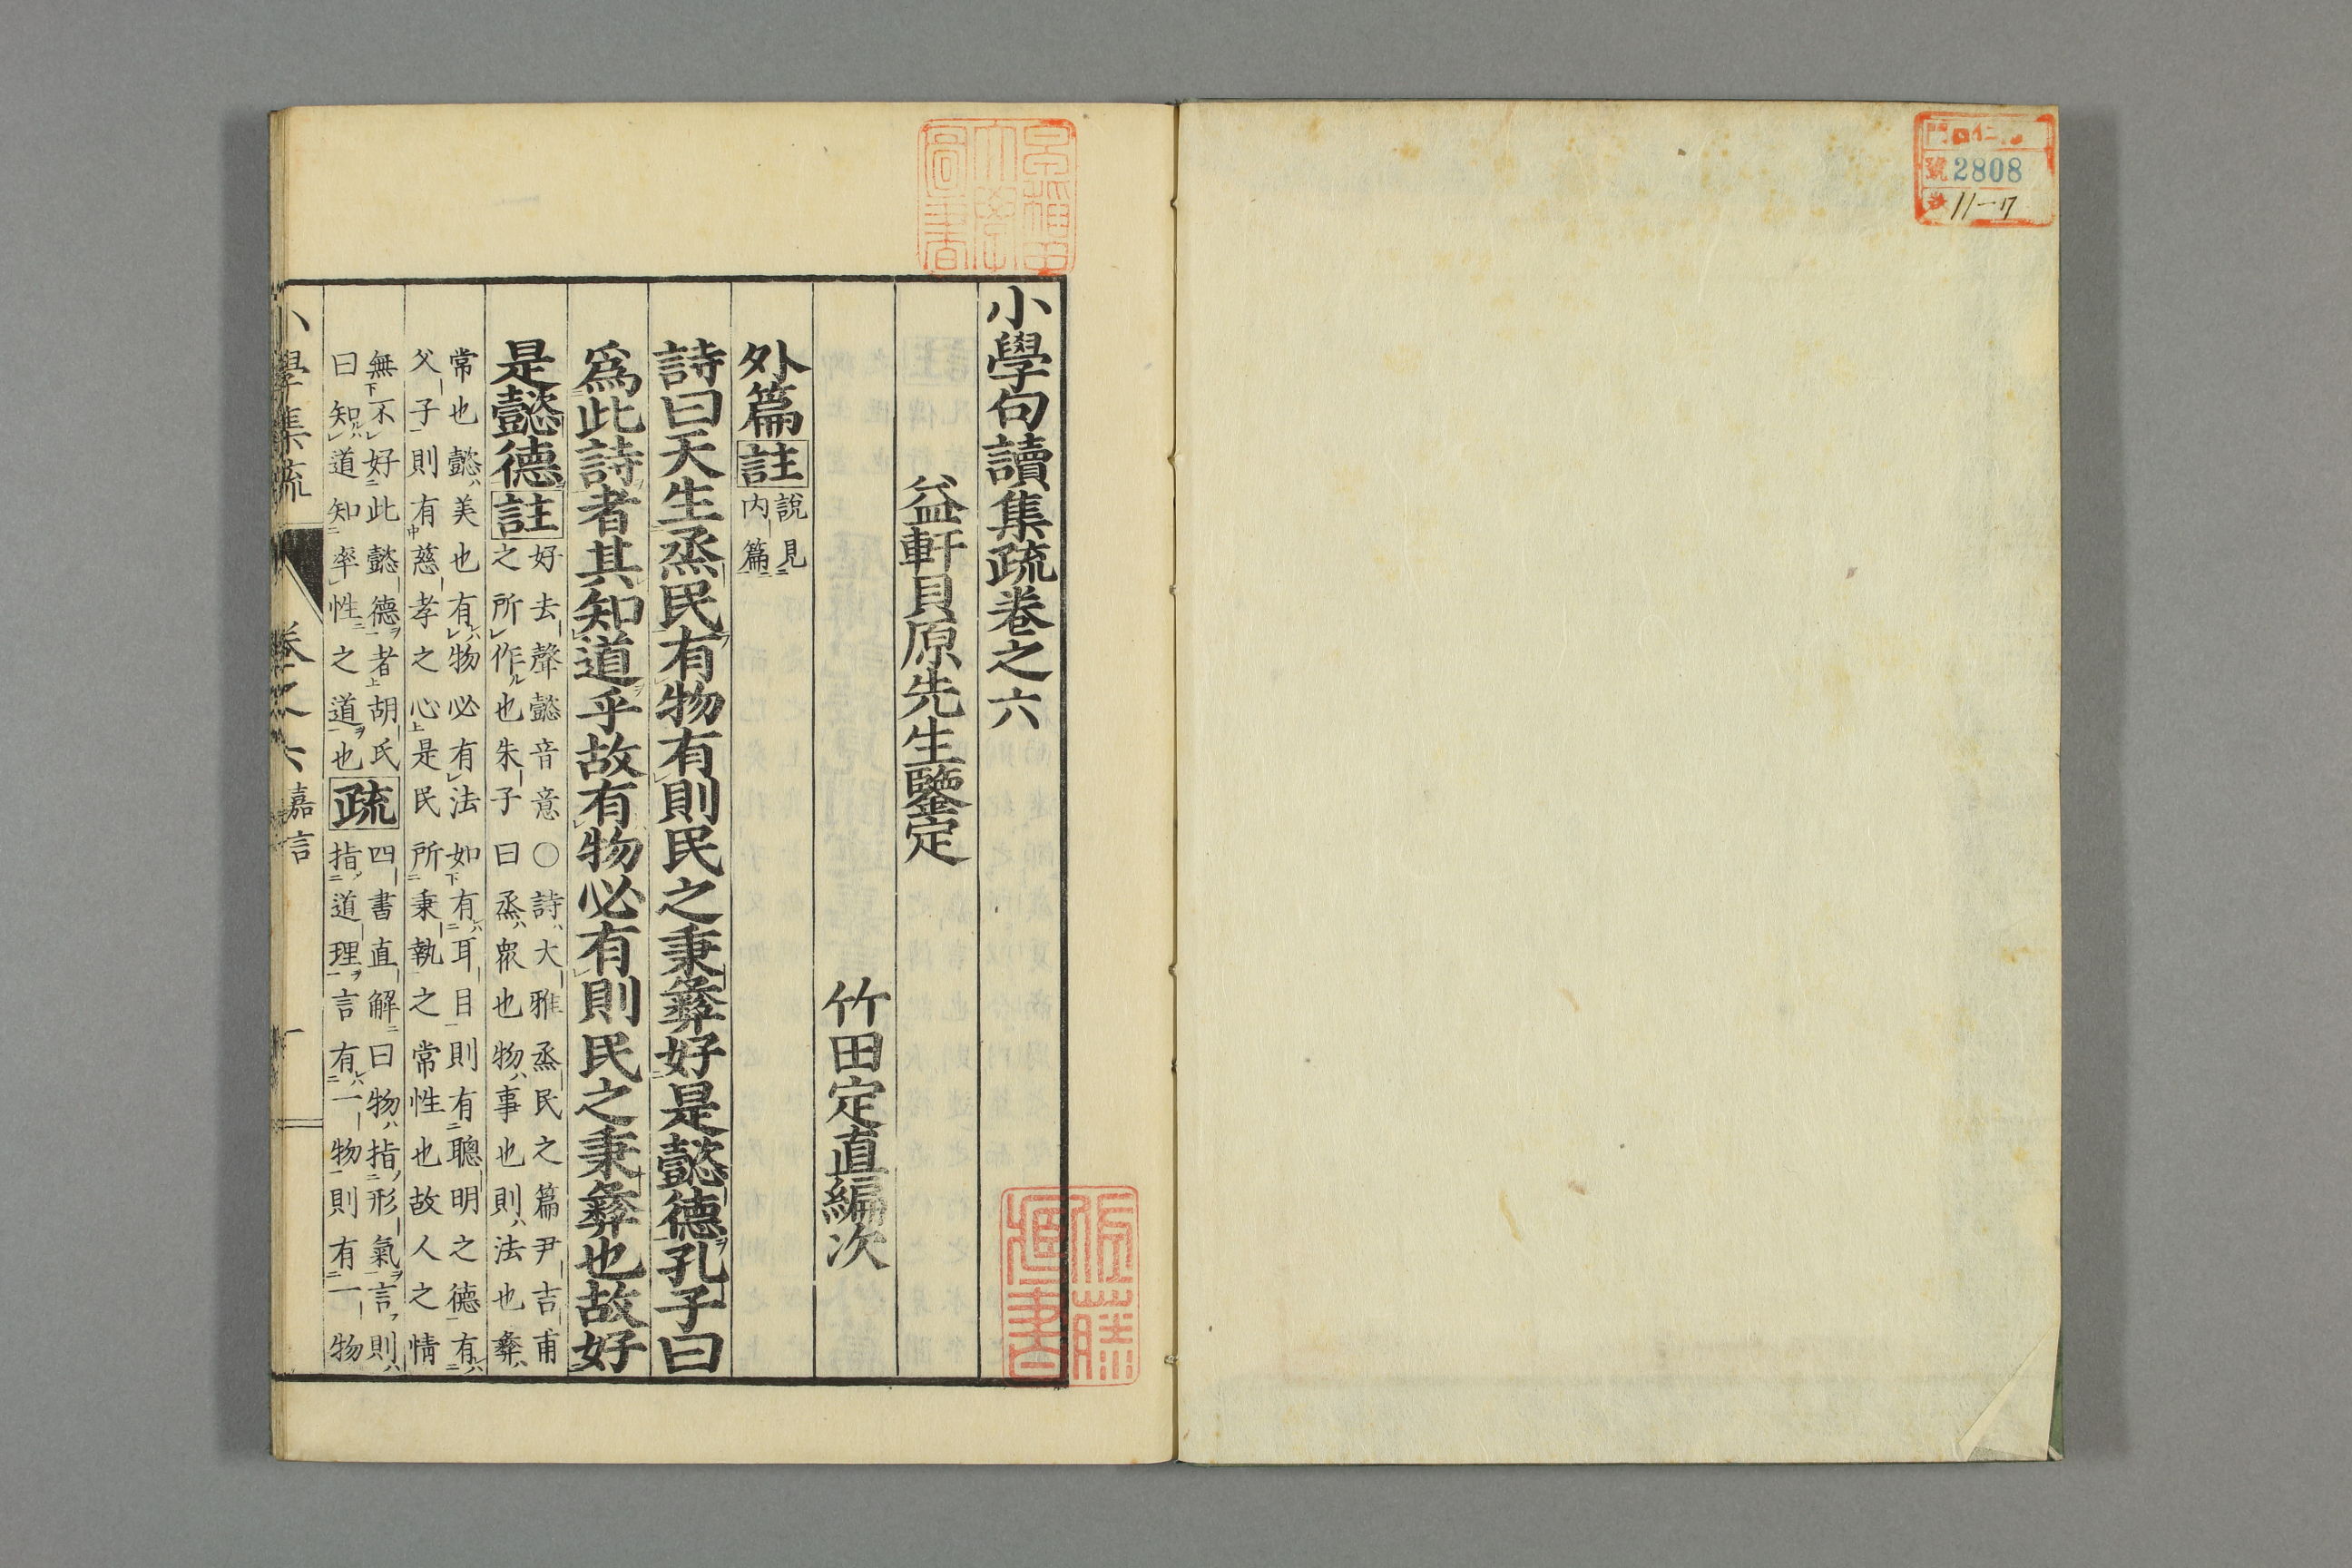 門
號 2808
11-17
早稲田
大學
圖書
小學句讀集疏卷之六
益軒貝原先生鑒定
竹田定直編次
外篇 註 說見内篇
詩曰天生烝民有物有則民之秉彝好是懿德孔子曰
爲此詩者其知道乎故有物必有則民之秉彝也故好
是懿德 註 好去聲懿音意〇詩大雅烝民之篇尹吉甫
之所作也朱子曰烝衆也物事也則法也彝
常也懿美也有物必有法如有耳目則有聰明之德有
父子則有慈孝之心是民所秉執之常性也故人之情
無不好此懿德者胡氏
曰知道知率性之道也 疏 四書直解曰物指形氣言則
指道理言有一物則有一物
小學集疏 卷之六 嘉言 一
佐藤
藏書